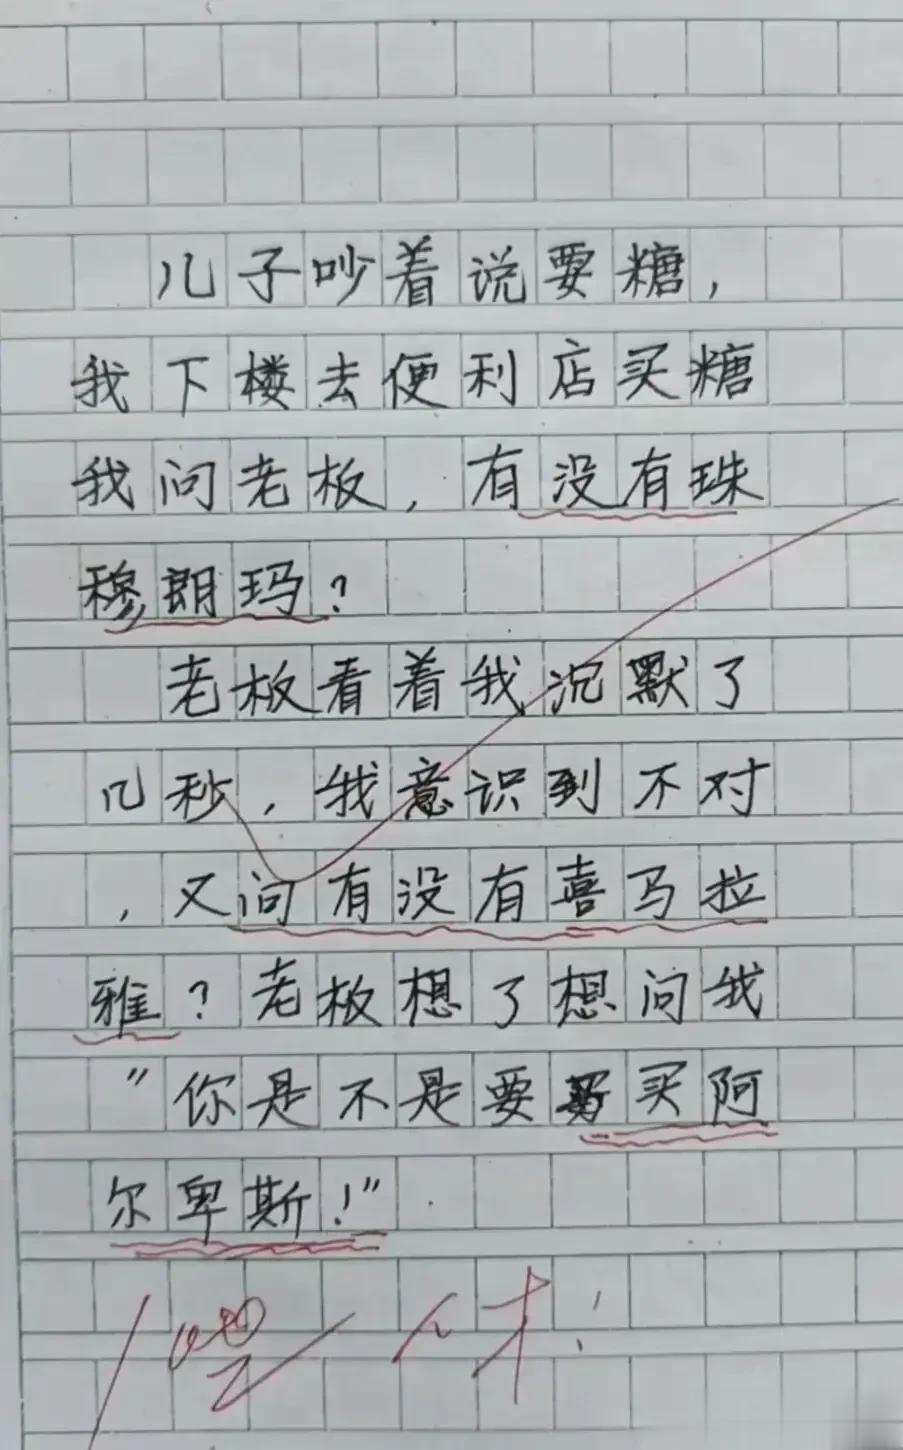 儿子吵着说要糖，
我下楼去便利店买糖
我问老板，有没有珠
穆朗玛？
老板看着我沉默了
几秒，我意识到不对
，又问有没有喜马拉
雅？老板想了想问我
”你是不是要买阿
尔卑斯！”
人才！